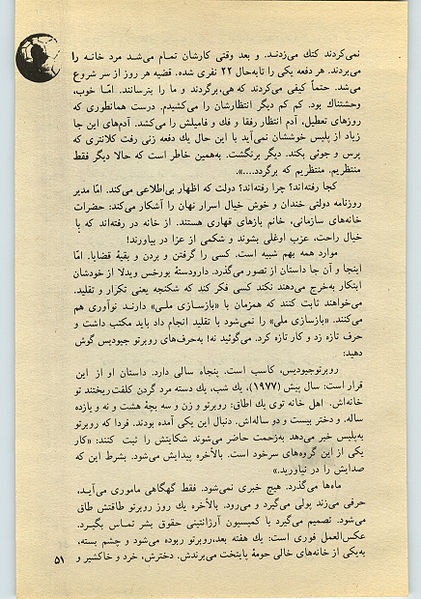 نمی‌کردند کتك می‌زدنـد. و بعد وقتی کارشان تمام می‌شـد مرد خانـه را
می‌بردند. هر دفعه یکی را تابه‌حال ۲۲ نفری شده. قضیه هر روز از سر شروع
می‌شد. حتمـاً کیفی می‌کردند که هی‌برگردند و ما را بترسانند. امّـا خوب،
وحشتناك بود. کم کم دیگر انتظارشان را می‌کشیدم. درست همانطوری که
روزهای تعطیل، آدم انتظار رفقا و فك و فامیلش را می‌کشد. آدم‌های این جا
زیاد از پلیس خوششان نمی‌آید با این حال یك دفعه زنی رفت کلانتری که
پرس و جوئی بکند. دیگر برنگشت. به‌همین خاطر است که حالا دیگر فقط
منتظریم. منتظریم که برگردد....».
کجا رفته‌اند؟ چرا رفته‌اند؟ دولت که اظهار بی‌اطلاعی می‌کند. امّا مدیر
روزنامه دولتی خندان و خوش خیال اسرار نهان را آشکار می‌کند: حضرات
خانه‌های سازمانی، خانم بازهای قهاری هستند. از خانه در رفته‌اند که با
خیال راحت، عزب اوغلی بشوند و شکمی از عزا در بیاورند!
موارد همه بهم شبیه است. کسی را گرفتن و بردن و بقیهٔ قضایا. امّا
اینجا و آن جا داستان از تصور می‌گذرد. دارودستهٔ یورخس ویدلا از خودشان
ابتکار به‌خرج می‌دهند نکند کسی فکر کند که شکنجه یعنی تکرار و تقلید.
می‌خواهند ثابت کنند که همزمان با «بازسـازی ملـی» دارنـد نوآوری هم
می‌کنند. «بازسازی ملی» را نمی‌شود با تقلید انجام داد باید مکتب داشت و
حرف تازه زد و کار تازه کرد. می‌گوئید نه! به‌حرف‌های روبرتو جیودیس گوش
دهید:
روبرتوجیودیس، کاسب است. پنجاه سالی دارد. داستان او از این
قرار است: سال پیش (۱۹۷۷)، یك شب، یك دسته مرد گردن کلفت‌ریختند تو
خانه‌اش. اهل خانه توی یك اطاق: روبرتو و زن و سه بچه هشت و نه و یازده
ساله. و دختر بیست و دو ساله‌اش. دنبال این یکی آمده بودند. فردا که روبرتو
به‌پلیس خبر می‌دهد به‌زحمت حاضر می‌شوند شکایتش را ثبت کنند: «کار
یکی از این گروه‌های سرخود است. بالأخره پیدایش می‌شود. بشرط این که
صدایش را در نیاورید.»
ماه‌ها می‌گذرد. هیچ خبری نمی‌شود. فقط گهگاهی ماموری می‌آیـد،
حرفی می‌زند پولی می‌گیرد و می‌رود. بالأخره یك روز روبرتو طاقتش طاق
می‌شود. تصمیم می‌گیرد با کمیسیون آرژانتینی حقوق بشر تمـاس بگیـرد.
عکس‌العمل فوری است: یك هفته بعد،روبرتو ربوده می‌شود و چشم بسته،
به‌یکی از خانه‌های خالی حومهٔ پایتخت می‌برندش. دخترش، خرد و خاکشیر و
۵۱